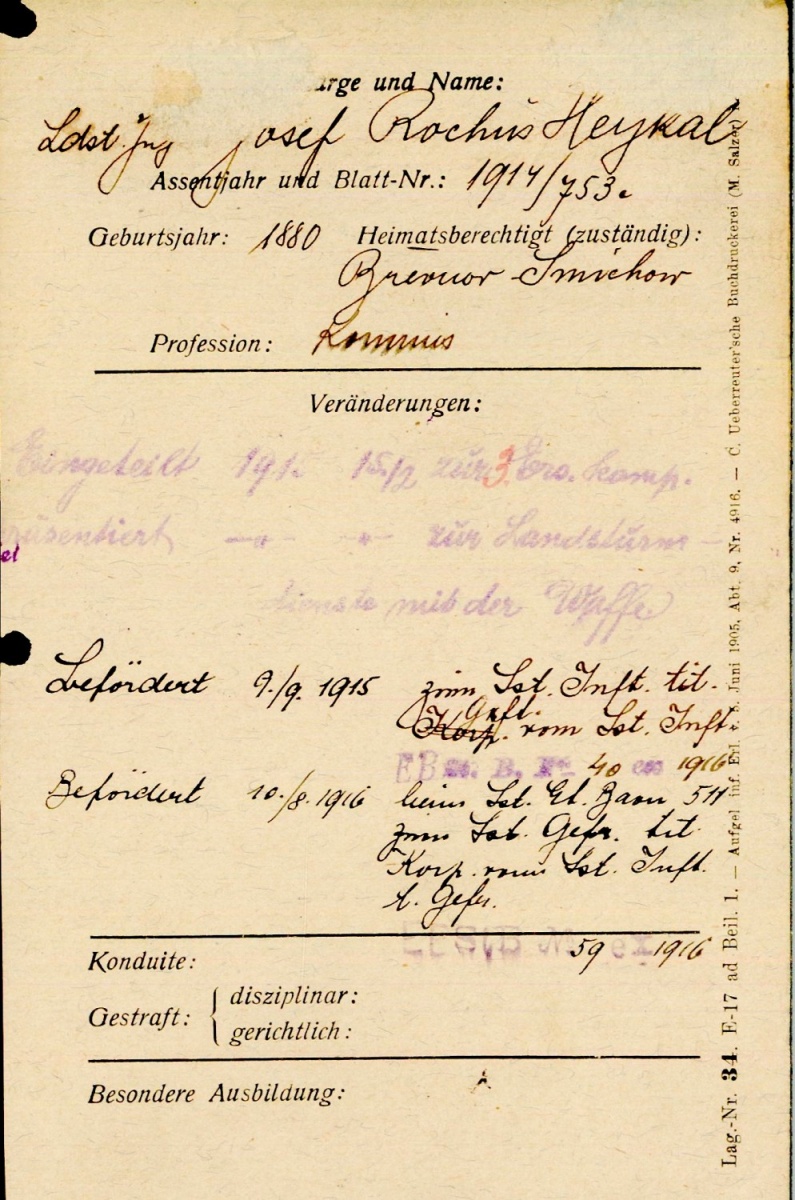 arge und Name:
Ldst. Josef Rochus Heykal
Assentjahr und Blatt-Nr.: 1914/753.
Geburtsjahr: 1880 Heimatsberechtigt (zuständig):
Brevnov Smichow
Profession: Kommis
Veränderungen:
Eingeteilt 191 15/2 zur 3 Ers. komp.
räsentiert —"— —"— zur Landsturm-
et
dienste mit der Waffe
Befördert 9./9. 1915 zum Lst. Inft. tit.
Gefr.
Korp. vom Lst. Inft.
EB 40 1916
Befördert 10./8. 1916 beim Lst. Et. Baon 511
zum Lst. Gefr. tit.
Korp. vom Lst. Inft.
t. Gefr.
59 1916
Konduite:
Gestraft: { disziplinar:
gerichtlich:
Besondere Ausbildung:
Lag.-Nr. 34. E-17 ad Beil. 1. — Aufgel. inf. Erl. v. Juni 1905, Abt. 9, Nr. 4916. — C. Ueberreuter'sche Buchdruckerei (M. Salzer)